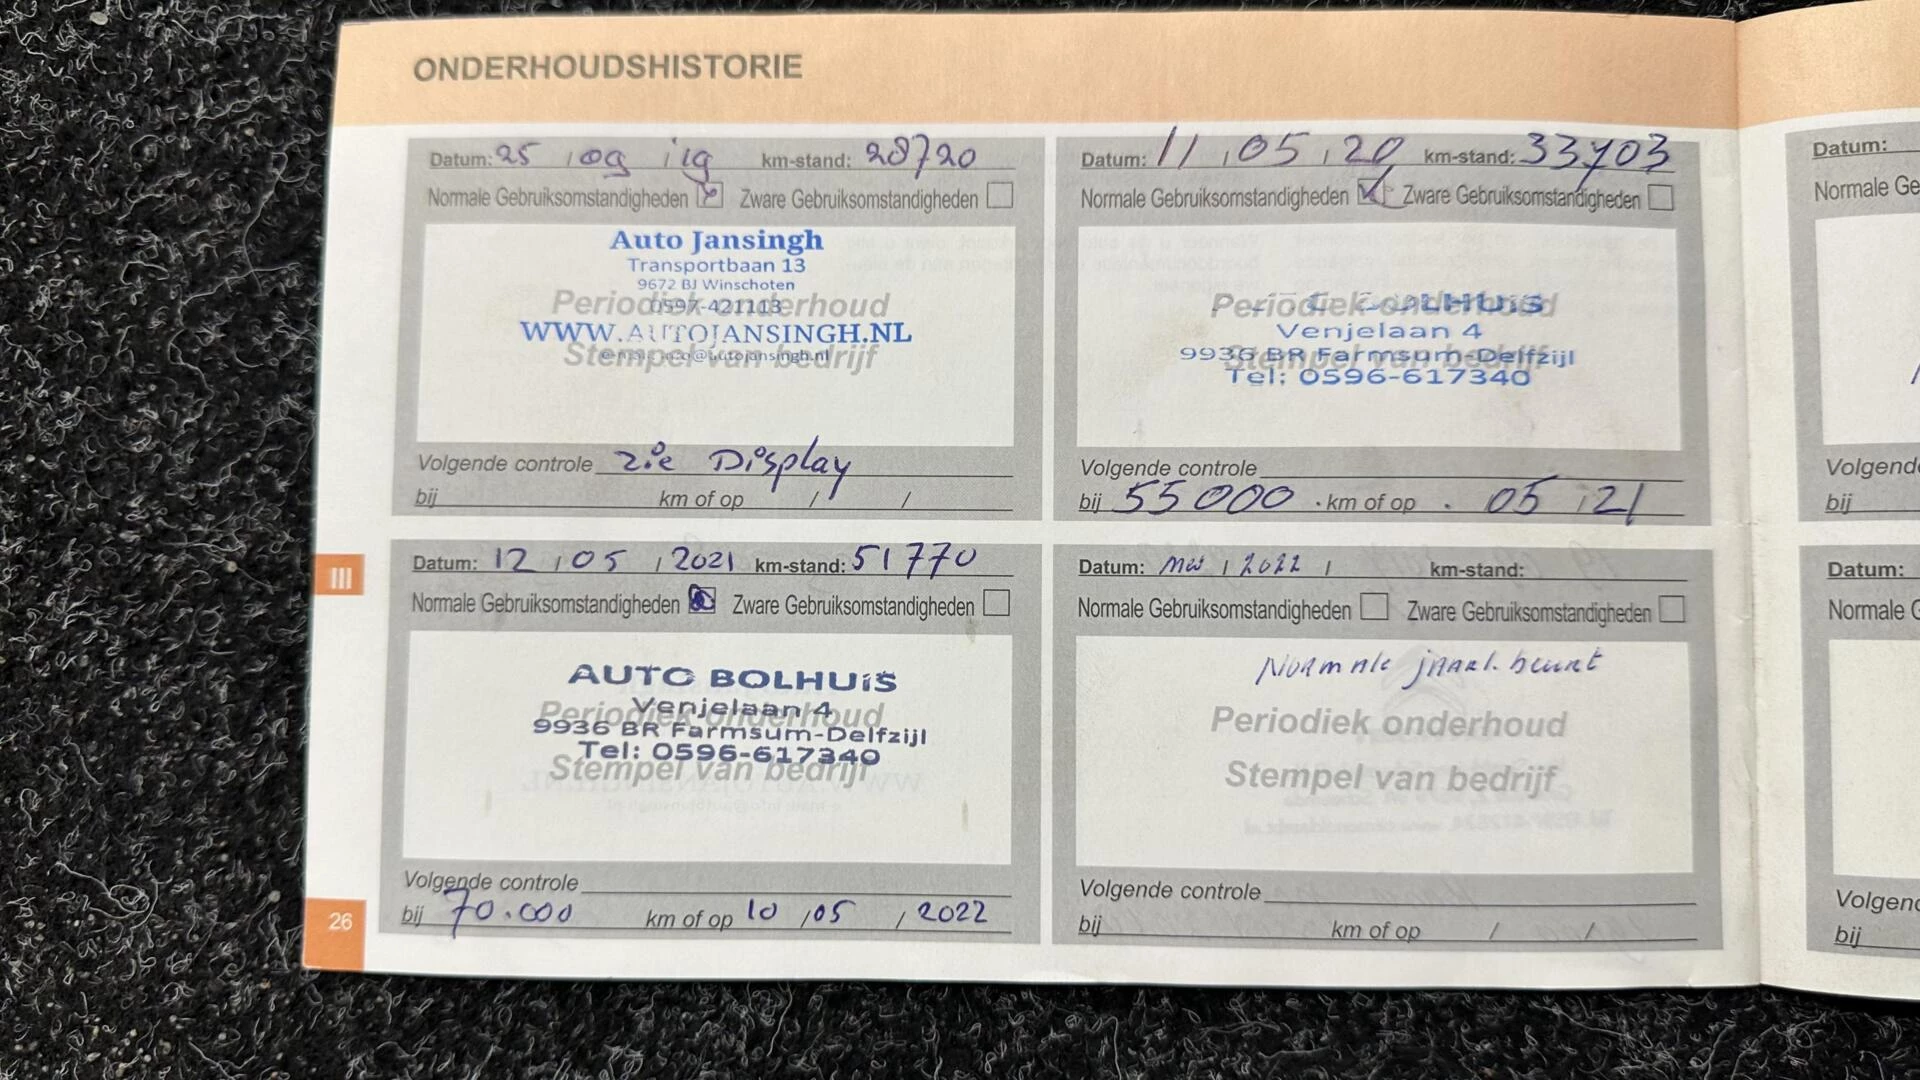 ONDERHOUDSHISTORIE
Datum: 25 / 09 / 19 km-stand: 28720
Normale Gebruiksomstandigheden Zware Gebruiksomstandigheden
Auto Jansingh
Transportbaan 13
9672 BJ Winschoten
Periodiek onderhoud
0597-421113
WWW.AUTOJANSINGH.NL
Stempel van bedrijf
e-mail: info@autojansingh.nl
Volgende controle zie Display
bij km of op / /
Datum: 11 / 05 / 20 km-stand: 33703
Normale Gebruiksomstandigheden Zware Gebruiksomstandigheden
Periodiek onderhoud
Venjelaan 4
9936 BR Farmsum-Delfzijl
Stempel van bedrijf
Tel: 0596-617340
Volgende controle
bij 55000 km of op 05 / 21
III
Datum: 12 / 05 / 2021 km-stand: 51770
Normale Gebruiksomstandigheden Zware Gebruiksomstandigheden
AUTO BOLHUiS
Venjelaan 4
Periodiek onderhoud
9936 BR Farmsum-Delfzijl
Tel: 0596-617340
Stempel van bedrijf
Volgende controle
bij 70.000 km of op 10 / 05 / 2022
Datum: / 2022 / km-stand:
Normale Gebruiksomstandigheden Zware Gebruiksomstandigheden
Normale jaarl. beurt
Periodiek onderhoud
Stempel van bedrijf
Volgende controle
bij km of op / /
26
Datum:
Normale Ge
Volgend
bij
Datum:
Normale G
Volgen
bij